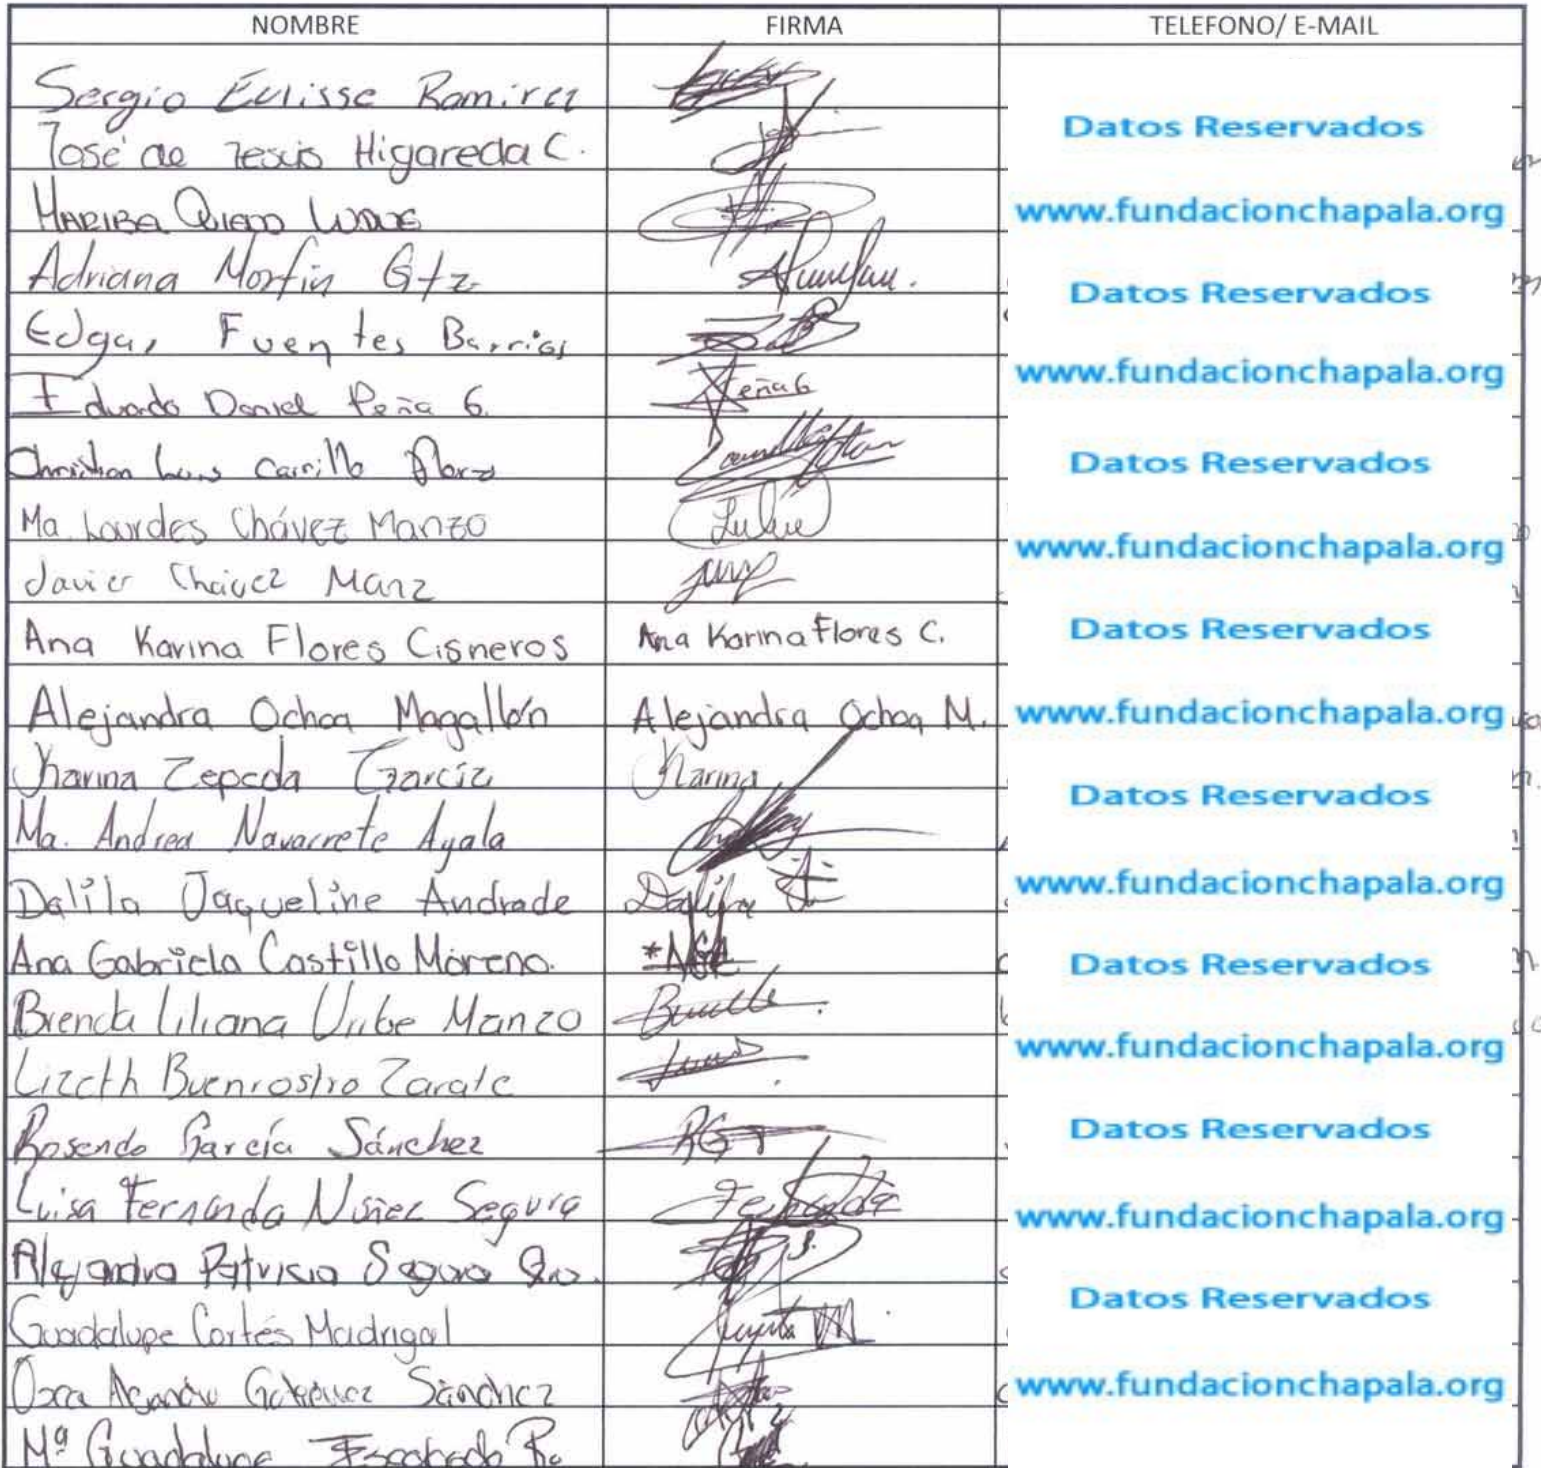 NOMBRE FIRMA TELEFONO/ E-MAIL
Sergio Eulisse Ramirez
José de Jesús Higareda C.
Datos Reservados
www.fundacionchapala.org
Adriana Morfin Gtz
Datos Reservados
Edgar Fuentes Barrios
www.fundacionchapala.org
Eduardo Daniel Peña G. Peña G
Christian Luis Carrillo Flores
Datos Reservados
Ma. Lourdes Chávez Manzo Lulu
www.fundacionchapala.org
Javier Chávez Manz
Ana Karina Flores Cisneros Ana Karina Flores C.
Datos Reservados
Alejandra Ochoa Magallón Alejandra Ochoa M.
www.fundacionchapala.org
Karina Zepeda García Karina
Datos Reservados
Ma. Andrea Navarrete Ayala
Dalila Jaqueline Andrade Dalila
www.fundacionchapala.org
Ana Gabriela Castillo Moreno.
Datos Reservados
Brenda Liliana Uribe Manzo
www.fundacionchapala.org
Lizeth Buenrostro Zarate
Rosendo García Sánchez
Datos Reservados
Luisa Fernanda Nuñez Segura Fernanda
www.fundacionchapala.org
Alejandra Patricia Segura
Guadalupe Cortés Madrigal
Datos Reservados
Sánchez
www.fundacionchapala.org
Mª Guadalupe Escobedo R.